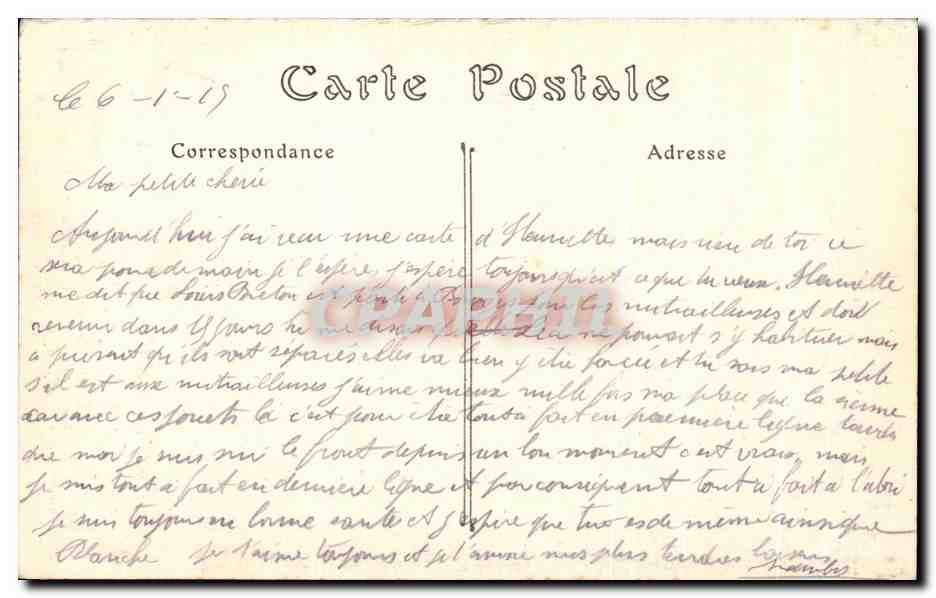 Carte Postale
le 6-1-15
Correspondance
Adresse
Ma petite cherie
Aujourd'hui j'ai recu une carte d'Henriette mais rien de toi ce
sera pour demain je l'espère, j'espère toujours qu'est ce que tu veux. Henriette
me dit que Louis Breton est parti a les mitrailleuses et doit
revenir dans 15 jours ne pouvait s'y habituer mais
a present qu'ils sont séparés elles va bien y être forcée et tu sais ma petite
s'il est aux mitrailleuses j'aime mieux mille fois ma place que la sienne
car avec ces jouets là c'est pour être tout a fait en premiere ligne tandis
que moi je suis sur le front depuis un bon moment c'est vrai, mais
je suis tout à fait en derniere ligne et par consequent tout à fait à l'abri
je suis toujours en bonne santé et j'espère que tu es de même ainsi que
Blanche je t'aime toujours et je t'envoie mes plus tendres baisers
CPAPHIL